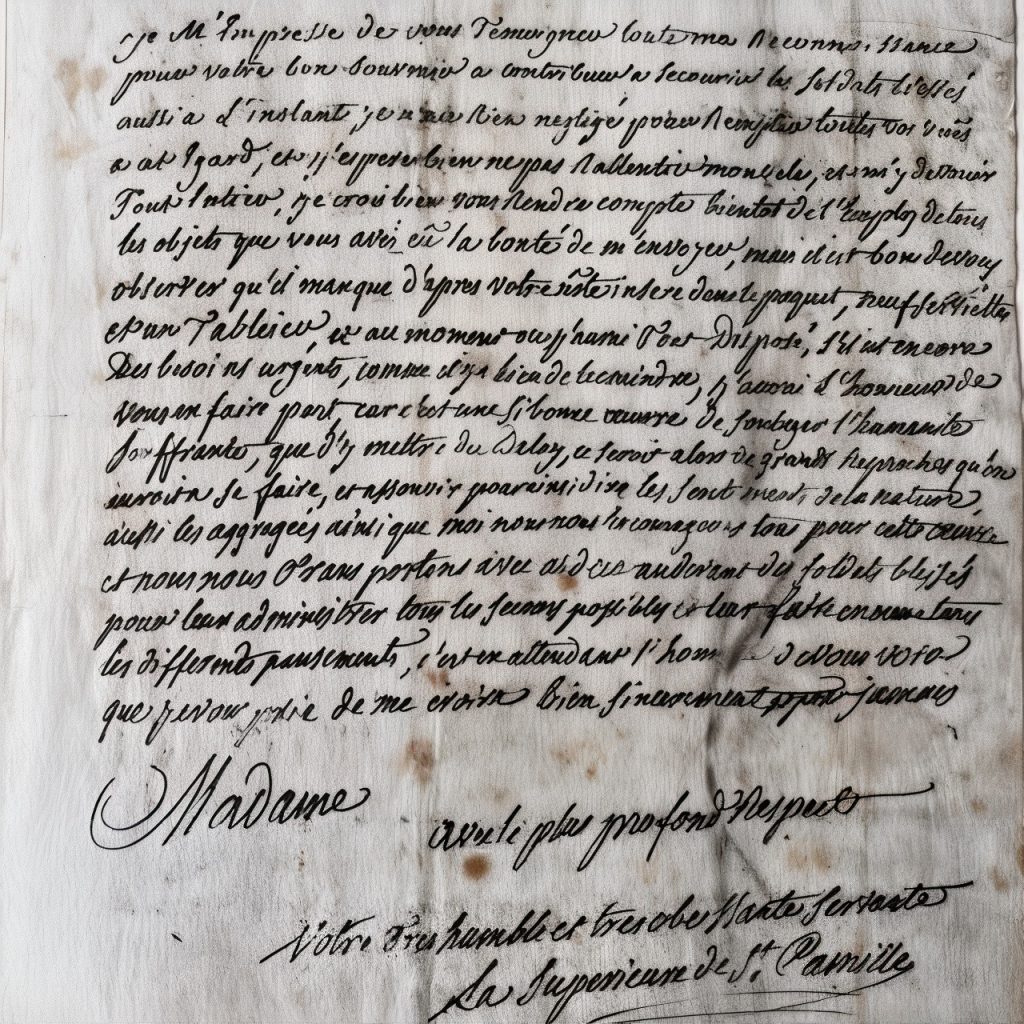 je M'Empresse de vous Temoigner toute ma Reconnoissance
pour votre bon Souvenir a contribuer a secourir les soldats blessés
aussi a l'instant, je n'ai Rien negligé pour Remplir toutes vos vües
a cet Egard, et j'espere bien ne pas Rallentir mon zele, et m'y devouer
Tout Entier, je crois bien vous Rendre compte bientot de l'Employ de tous
les objets que vous avez eü la bonté de m'envoyer, mais il est bon de vous
observer qu'il manque d'apres votre liste insere dans le paquet, neuf serviettes
et un Tablier, et au moment ou j'aurai Tout Disposé, s'il est encore
Des besoins urgents, comme il y a bien de le craindre, j'aurai l'honneur de
vous en faire part, car c'est une si bonne œuvre de soulager l'humanité
souffrante, que d'y mettre du Delay, ce seroit alors de grands Reproches qu'on
auroit a se faire, et assouvir pour ainsi dire les sentiments de la nature
aussi les aggregées ainsi que moi nous nous encourageons tous pour cette œuvre
et nous nous Transportons avec au devant des soldats blessés
pour leur administrer tous les secours possibles et leur faire
les differents pansements, c'est en attendant l'hon de vous voir
que je vous prie de me croire Bien sincerement pour jamais
Madame
avec le plus profond Respect
Votre Tres humble et tres obeissante servante
La Superieure de St. Camille